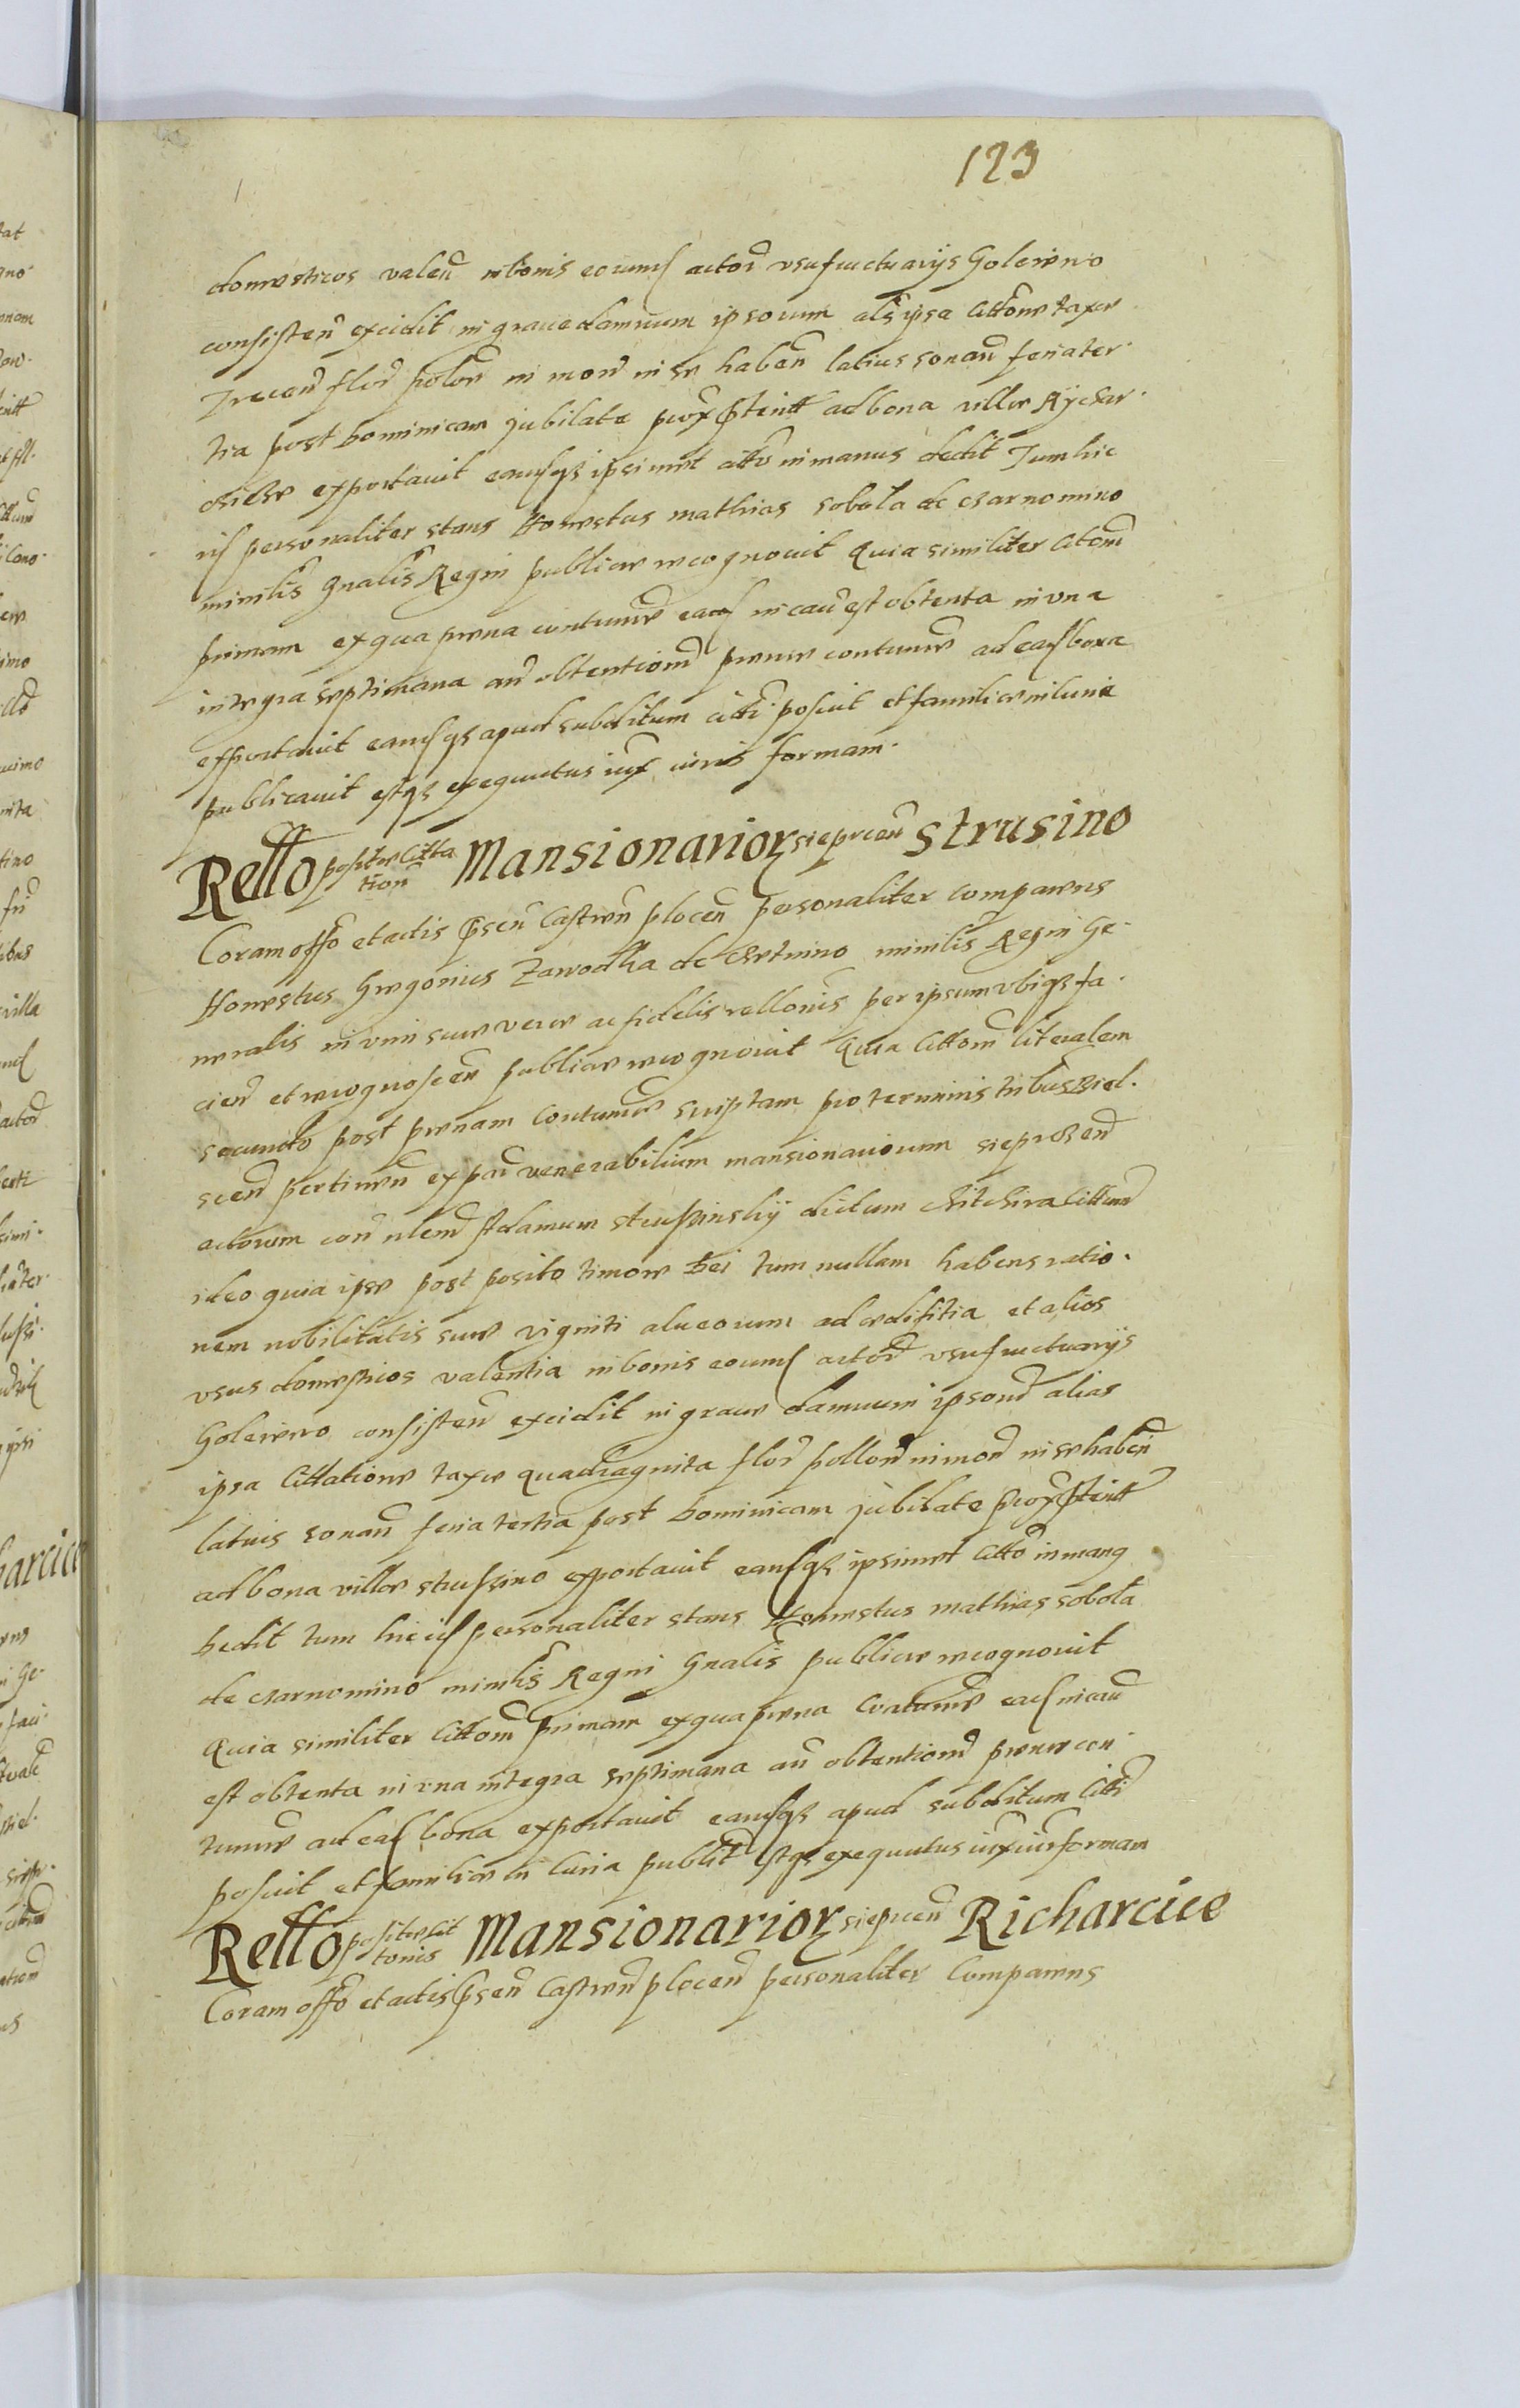 123
domesticos valen in bonis eorund actor usufructuarijs Golewo
consisten excidit in grave damnum ipsorum als ipsa cittone taxe
Trecen flor polon in mon in se haben latius sonan feria ter
tia post dominicam Jubilate prox ptentt ad bona ville Rychar
citze exportavit eandqs ipsimet citto in manus dedit Tum hic
id personaliter stans Honestus Mathias Sobola de Czarnomino
minilis gnalis Regni publice recognovit Quia similiter Citom
primam ex qua pena contume eadem in cau est obtenta in una
integra septimana an obtentiom pene contume ad ead bona
exportavit eandqs apud subditum citti posuit et familie in curia
publicavit estqs exequutus iux iuris formam
Rello posite citta
tion Mansionarior siepricen Strusino
Coram offo et actis psen Castren plocen personaliter comparens
Honestus Gregorius Zawodka de Chetmino minilis Regni Ge
neralis in vim sue vere ac fidelis rellonis per ipsum ubiqs fa
cien et recognoscen publice recognovit Quia cittom literalem
secundo post penam contume scriptam pro terminis tribus Biel
scen pertinen ex par venerabilium mansionariorum sieprczen
actorum con nlem Adamum Strusinsky dictum Chitchira cittum
ideo quia ipse post posito timore Dei tum nullam habens ratio
nem nobilitatis sue viginti alveorum ad edifitia et alios
usus domesticos valentia in bonis eorund actor usufructuarijs
Golewo consisten excidit in grave damnum ipsorum alias
ipsa cittatione taxe quadraginta flor pollon in mon in se haben
latius sonan feria tertia post dominicam Jubilate prox ptentt
ad bona ville Strussino exportavit eandqs ipsimet citto in manq
dedit tum hic id personaliter stans Honestus Mathias Sobola
de Czarnomino minilis Regni Gnalis publice recognovit
Quia similiter cittom primam ex qua pena contume ead in cau
est obtenta in una integra septimana an obtentiom pene con
tume ad ead bona exportavit eandqs apud subditum citti
posuit et familie in curia publit estqs exequutus iux iur formam
Rello posite cit
tonis Mansionarior siepricen Richarcice
Coram offo et actis psen Castren plocen personaliter Comparens